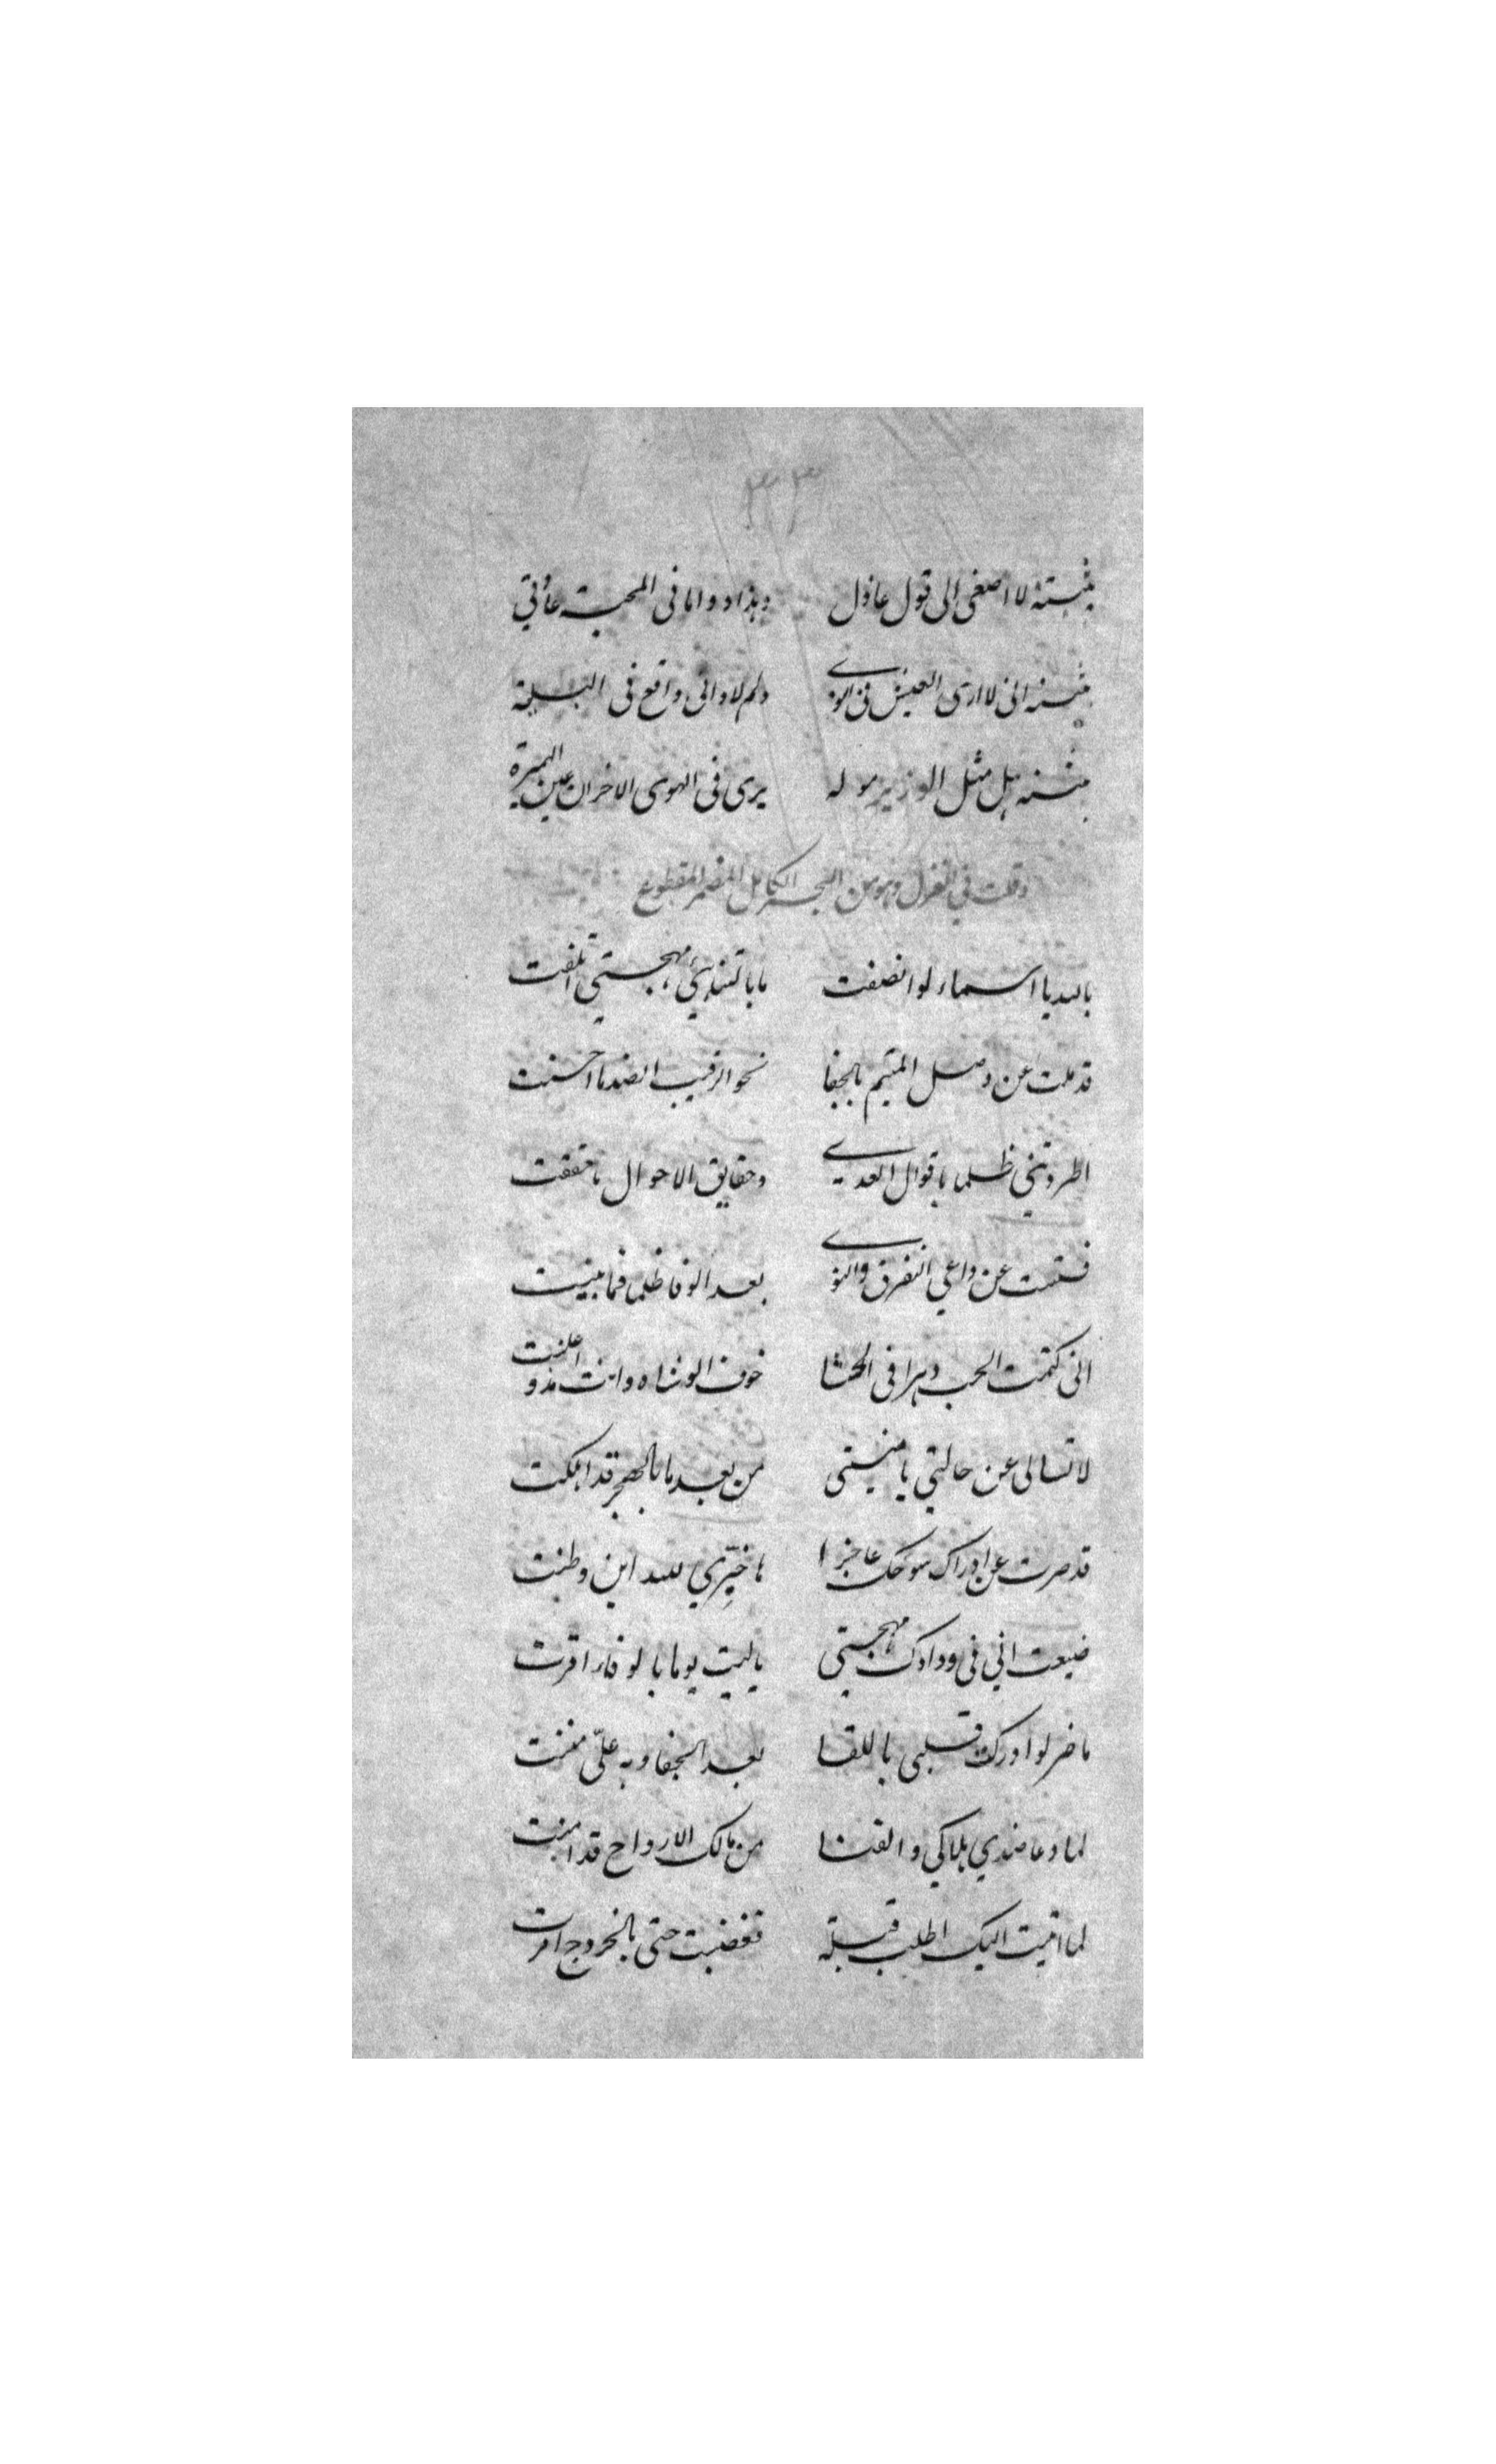 ٣٣
بثينة لا اصغى الى قول عاذل وهذا دوامافى المحبة عادتي
بثينة انى لا ارى العيش فى النوى ولم لا وانى واقع فى البلية
بثينة هل مثل الوزير موله يرى فى الهوى الاخران عين المبرة
وقلت في الغزل وهو من البحر الكامل المضمر المقطوع
بالله يا اسماء لو انصفت ما باتئادي مهجتي اتلفت
قد ملت عن وصل المتيم بالجفا نحو الرقيب الضد ما احسنت
اطردتني ظلما باقوال العدى وحقايق الاحوال ما حققت
فستت عن داعي التفرق والنوى بعد الوفا ظلما فما بينت
انى كتمت الحب دهرا فى الحشا خوف الوشاه وانت مذ واعلنت
لا تسالى عن حالتي يا منيتى من بعد ما بالهجر قد اهلكت
قد صرت عن ادراك سوحك عاجزا ها خبّري لله اين وطنت
ضيعت انى فى ودادك مهجتي يا ليت يوما بالوفاء اقرت
ما ضر لو ادركت قلبى باللقا بعد الجفا وبه علىّ مننت
لما دعا ضدي هلاكي والفنا من مالك الارواح قد امنت
لما اتيت اليك اطلب قبلة فغضبت حتى بالخروج امرت